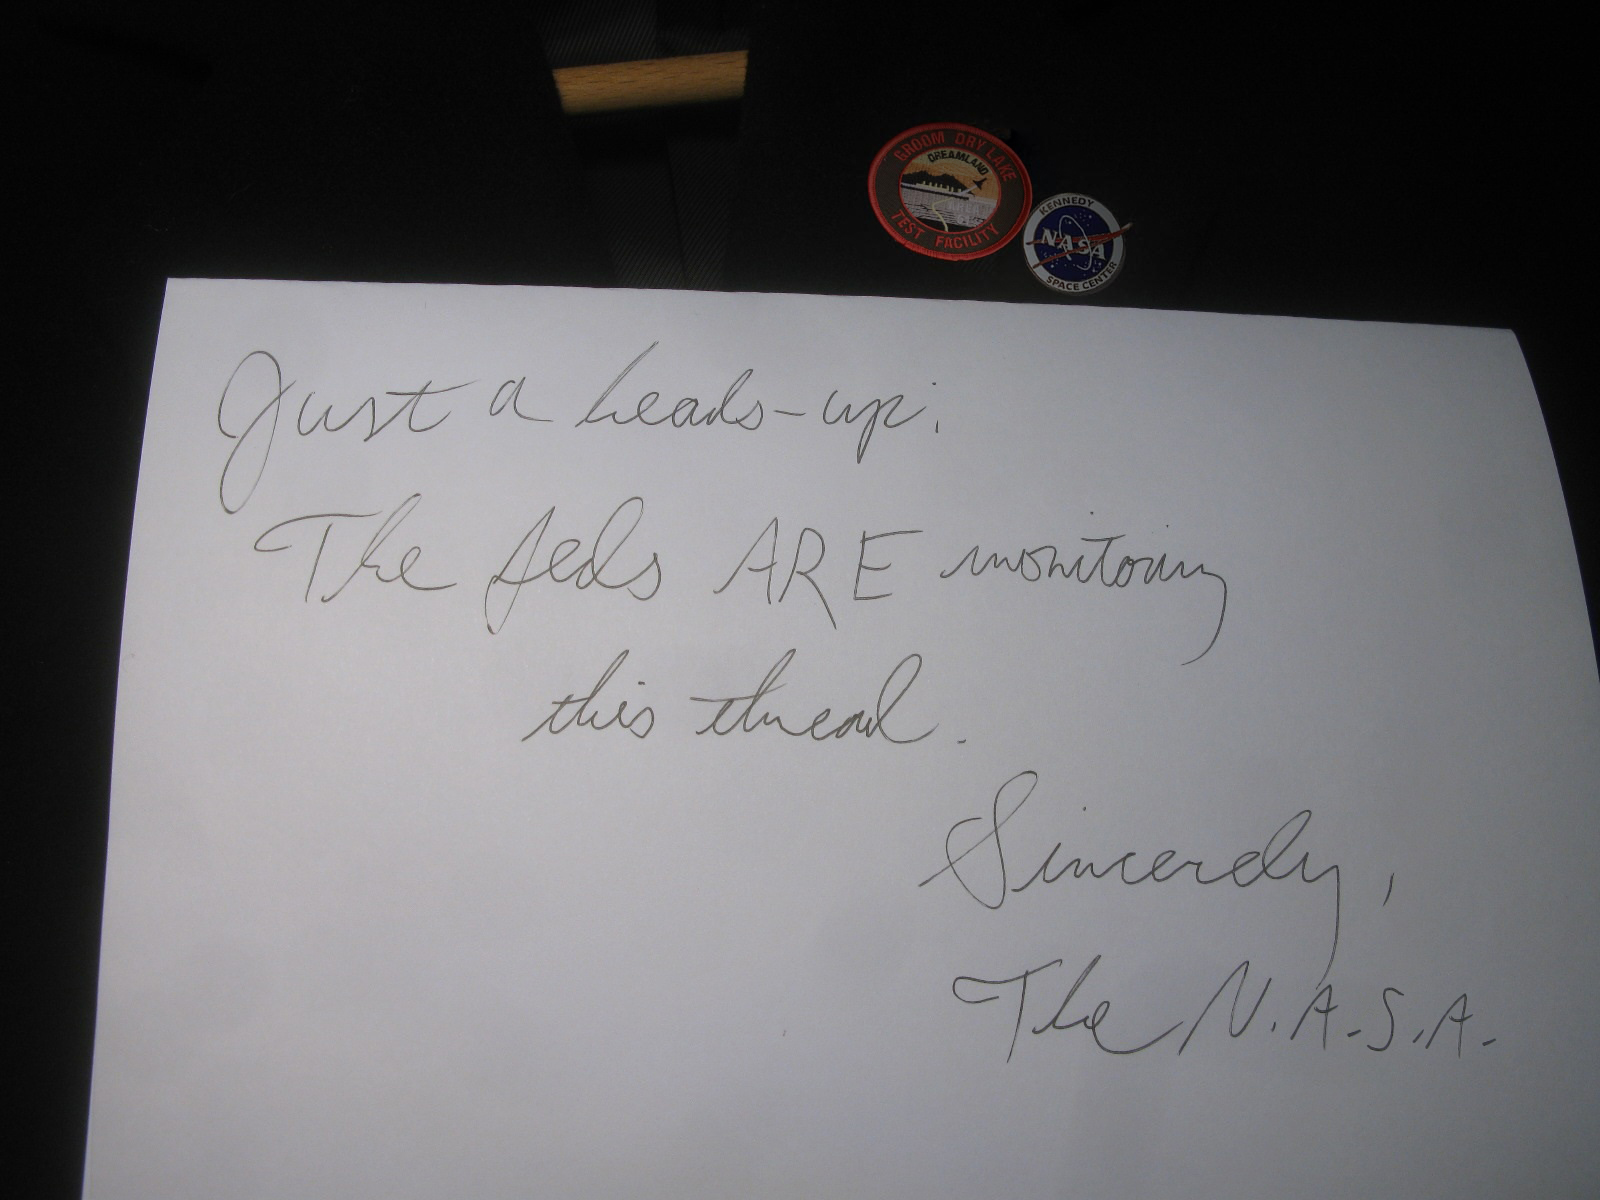 GROOM DRY LAKE
DREAMLAND
TEST FACILITY
KENNEDY
NASA
SPACE CENTER
Just a heads-up:
The feds ARE monitoring
this thread.
Sincerely,
The N.A.S.A.